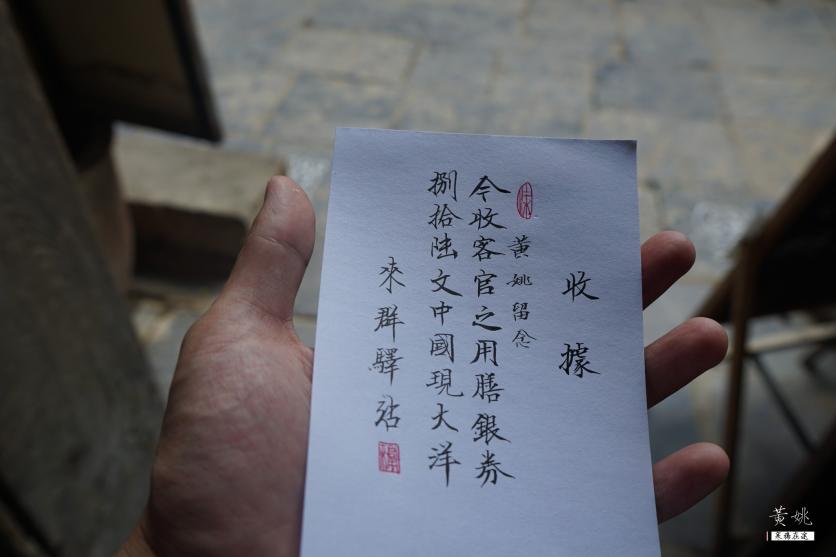 收據
黃姚留念
今收客官之用膳銀券
捌拾陸文中國現大洋
來群驛站
黃姚